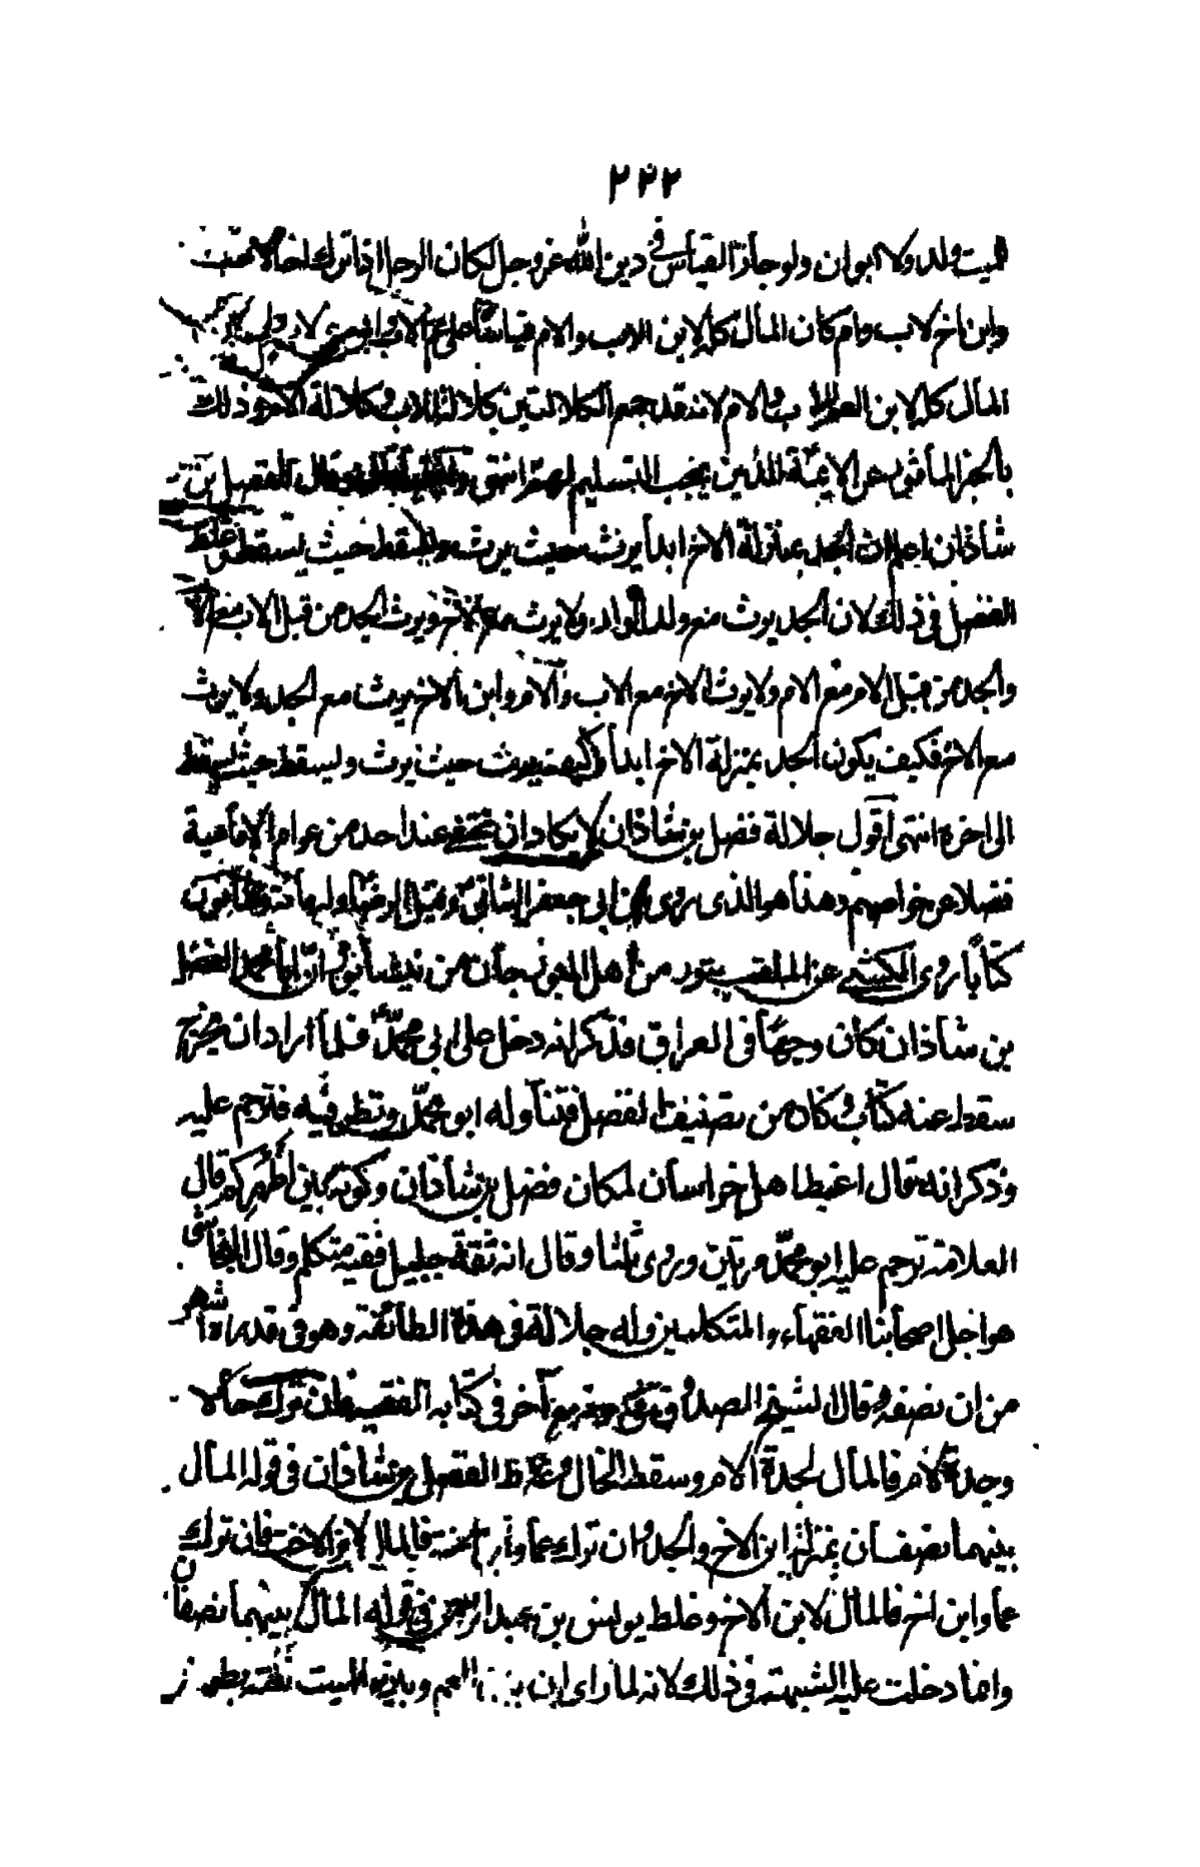 ٢٤٢
للميت ولد ولا ابوان ولو جاز القياس في دين الله عز وجل لكان الرجل اذا ترك اخا لاب
وابن اخ لاب وام كان المال كله لابن الاب والام قياسا على عم لاب وابن عم لاب
المال كله لابن العم للاب والام لانه قد جمع الكلالتين كلالة الاب وكلالة الام وذلك
بالخبر المأثور عن الائمة الذين يجب التسليم لهم انتهى وقال الفضل بن
شاذان اعلم ان الجد بمنزلة الاخ ابدا يرث حيث يرث ويسقط حيث يسقط وغلط
الفضل في ذلك لان الجد يرث مع ولد الولد ولا يرث معه الاخ ويرث الجد من قبل الاب مع الاب
والجد من قبل الام مع الام ولا يرث الاخ مع الاب والام وابن الاخ يرث مع الجد ولا يرث
مع الاخ فكيف يكون الجد بمنزلة الاخ ابدا وكيف يرث حيث يرث ويسقط حيث يسقط
الى اخره انتهى اقول جلالة فضل بن شاذان لا يكاد ان تخفى عند احد من عوام الامامية
فضلا عن خواصهم وهذا هو الذى روى عن ابى جعفر الثانى وقيل الرضا وله مائة وثمانون
كتابا روى الكشي عن الملقب بتورا من اهل البوزجان من نيشابور ان ابا محمد الفضل
بن شاذان كان وجهه الى العراق فذكر انه دخل على ابى محمد فلما اراد ان يخرج
سقط عنه كتاب وكان من تصنيف الفضل فتناوله ابو محمد ونظر فيه فترحم عليه
وذكر انه قال اغبط اهل خراسان لمكان فضل بن شاذان وكونه بين اظهركم وقال
العلامة ترحم عليه ابو محمد مرتين وروى ثلثا وقال انه ثقة جليل فقيه متكلم وقال النجاشى
هو اجل اصحابنا الفقهاء والمتكلمين وله جلالة فى هذه الطائفة وهو فى قدره اشهر
من ان نصفه وقال الشيخ الصدوق فى موضع آخر فى كتابه الفقيه فان ترك خالا
وجدة لام فالمال لجدة الام وسقط الخال وغلط الفضل بن شاذان فى قوله المال
بينهما نصفان بمنزلة ابن الاخ والجد وان ترك عما وابن اخت فالمال لابن الاخت فان ترك
عما وابن اخ فالمال لابن الاخ وغلط يونس بن عبد الرحمن فى قوله المال بينهما نصفان
وانما دخلت عليه الشبهة فى ذلك لانه لما راى ان بين العم وبين الميت ثلثة بطون